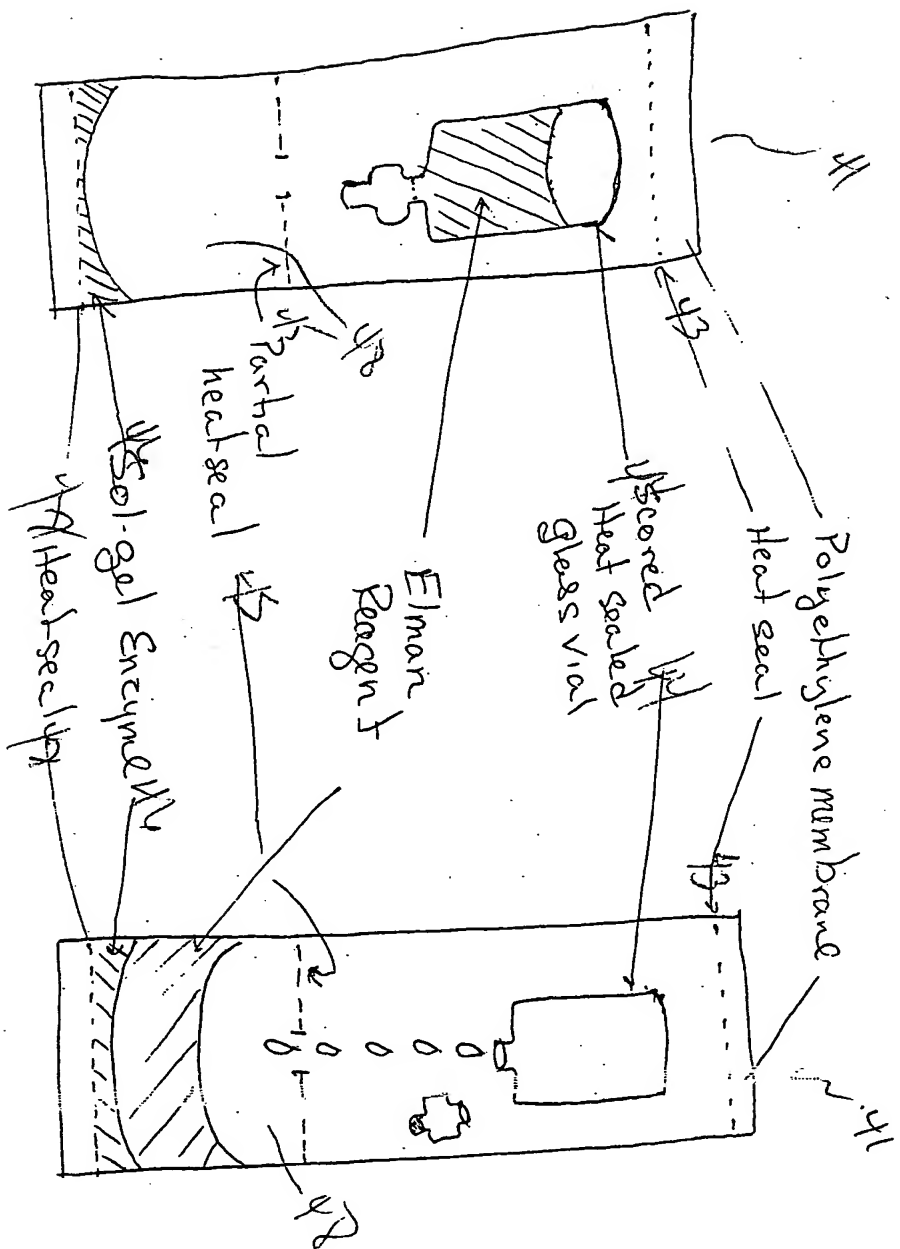 41
43
Polyethylene membrane
Heat seal
43
41
Scored
Heat sealed
glass vial
Elman
Reagent
48
Partial
heat seal
Sol-gel Enzyme
Heat seal
48